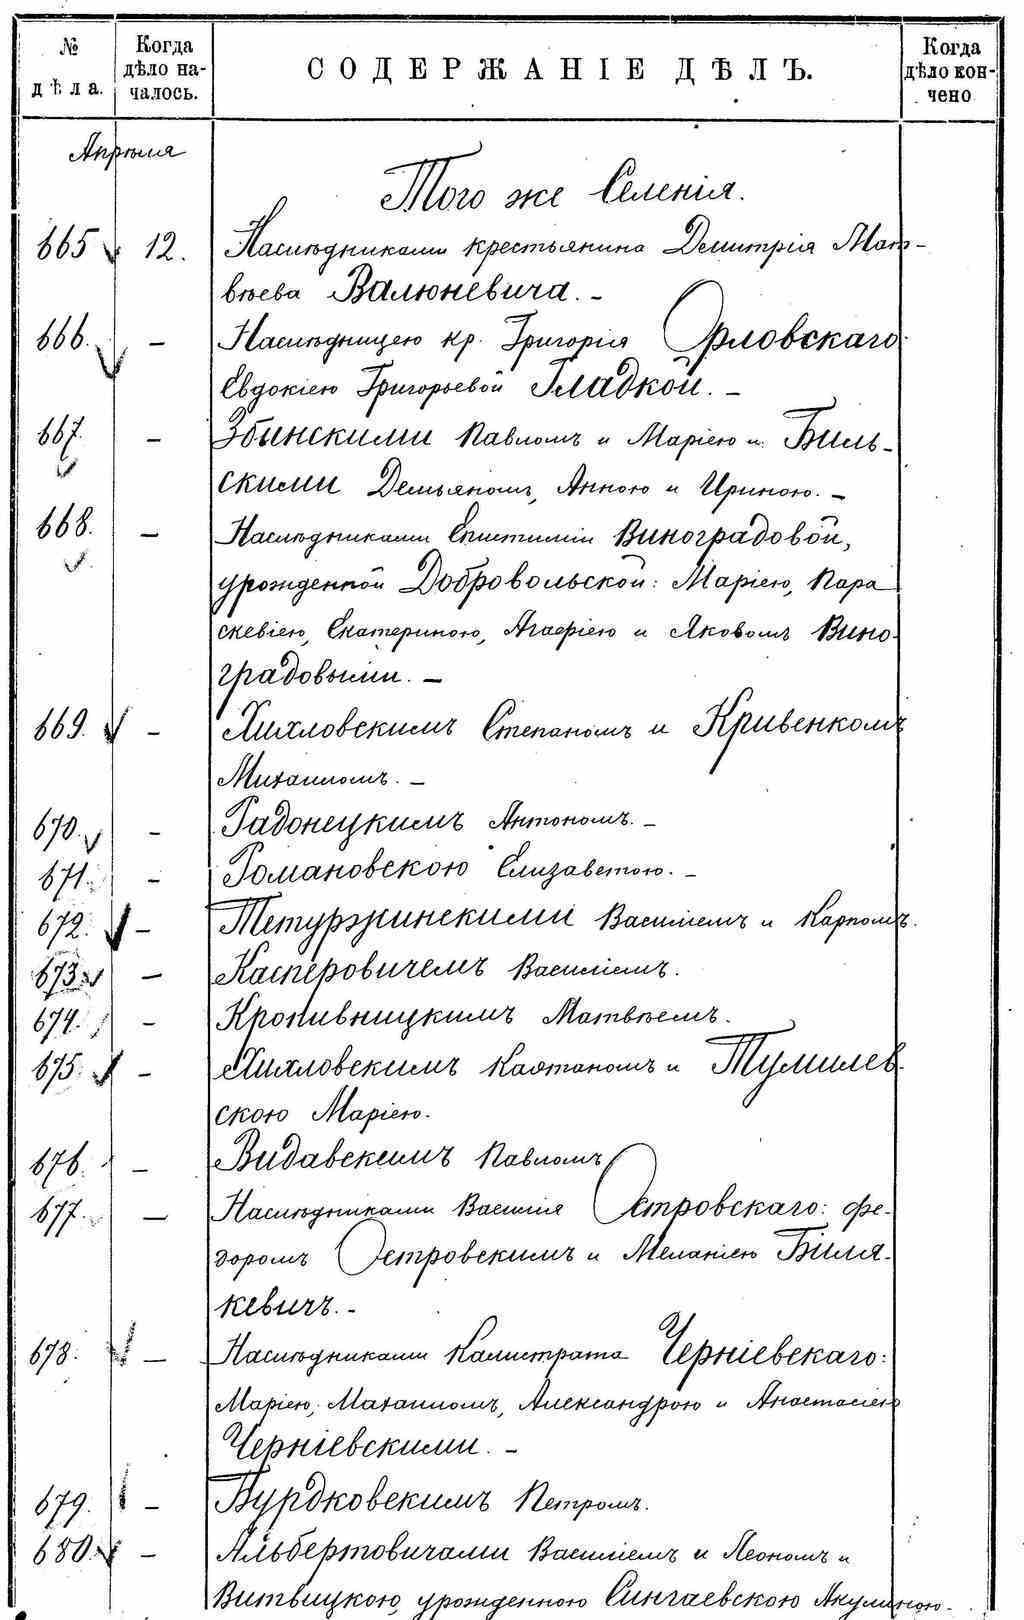 № дѣла.
Когда дѣло началось.
СОДЕРЖАНІЕ ДѢЛЪ.
Когда дѣло кончено
Апрѣля
Того же Селенія.
665 12. Наслѣдниками крестьянина Демитрія Мат-
вѣева Валюневича. –
666. – Наслѣдницею кр. Григорія Орловскаго:
Евдокіею Григорьевой Гладкой. –
667. – Збынскими Павломъ и Маріею и Биль-
скими Демьяномъ, Анною и Ириною. –
668. – Наслѣдниками Епистиміи Виноградовой,
урожденной Добровольской: Маріею, Пара
скевіею, Екатериною, Агафіею и Яковомъ Вино-
градовыми. –
669. – Хихловскимъ Степаномъ и Кривенкомъ
Михаиломъ. –
670. – Радонецкимъ Антономъ. –
671. – Романовскою Елизаветою. –
672. – Тетуржинскими Василіемъ и Карпомъ.
673 – Касперовичемъ Василіемъ.
674. – Кропивницкимъ Матвѣемъ.
675. – Хихловскимъ Каэтаномъ и Тумилев-
скою Маріею.
676. – Видавскимъ Павломъ
677. – Наслѣдниками Василія Островскаго: Фе-
доромъ Островскимъ и Меланіею Біля-
кевичъ. –
678. – Наслѣдниками Калистрата Черніевскаго:
Маріею, Михаиломъ, Александрою и Анастасіею
Черніевскими. –
679. – Бурдковскимъ Петромъ.
680. – Альбертовичами Василіемъ и Леономъ и
Витвицкою, урожденною Сингаевскою Акулиною. –